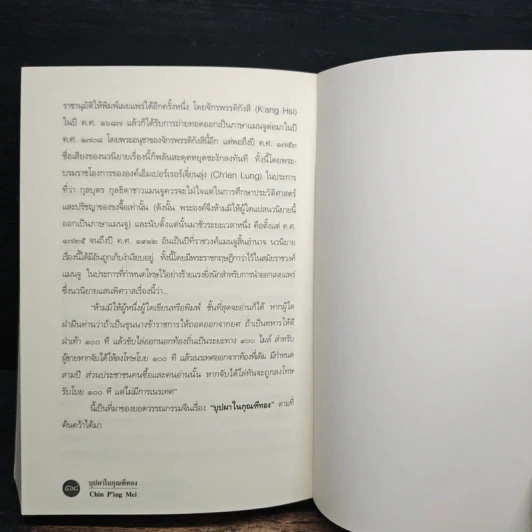 ราชานุมัติให้พิมพ์เผยแพร่ได้อีกครั้งหนึ่ง โดยจักรพรรดิกังสี (K'ang Hsi)
ในปี ค.ศ. ๑๖๘๗ แล้วก็ได้รับการถ่ายทอดออกเป็นภาษาแมนจูต่อมาในปี
ค.ศ. ๑๗๐๘ โดยพระอนุชาของจักรพรรดิกังสีนี้อีก แต่พอถึงปี ค.ศ. ๑๗๕๓
ชื่อเสียงของนวนิยายเรื่องนี้ก็พลันสะดุดหยุดชะงักลงทันที ทั้งนี้โดยพระ-
บรมราชโองการขององค์เอ็มเปอร์เรอร์เจี่ยนลุ่ง (Ch'ien Lung) ในประการ
ที่ว่า กุลบุตร กุลธิดาชาวแมนจูควรจะใฝ่ใจแต่ในการศึกษาประวัติศาสตร์
และปรัชญาของขงจื๊อเท่านั้น (ดังนั้น พระองค์จึงห้ามมิให้ผู้ใดแปลนวนิยายนี้
ออกเป็นภาษาแมนจู) และนับตั้งแต่นั้นมาชั่วระยะเวลาหนึ่ง คือตั้งแต่ ค.ศ.
จนถึงปี ค.ศ. ๑๙๑๒ อันเป็นปีที่ราชวงศ์แมนจูสิ้นอำนาจ นวนิยาย
เรื่องนี้ได้มีอันถูกเก็บงำเงียบอยู่ ทั้งนี้โดยมีพระราชกฤษฎีกาว่าไว้ในสมัยราชวงศ์
แมนจู ในประการที่กำหนดโทษไว้อย่างร้ายแรงยิ่งนักสำหรับการนำออกเผยแพร่
ซึ่งนวนิยายแสนพิศวาสเรื่องนี้ว่า...
"ห้ามมิให้ผู้หนึ่งผู้ใดเขียนหรือพิมพ์ ขั้นที่สุดจะอ่านก็ได้ หากผู้ใด
ฝ่าฝืนท่านว่าถ้าเป็นขุนนางข้าราชการให้ถอดออกจากยศ ถ้าเป็นทหารให้ตี
ฝ่าเท้า ๑๐๐ ที แล้วขับไล่ออกนอกท้องถิ่นเป็นระยะทาง ๑๐๐ ไมล์ สำหรับ
ผู้ขายหากจับได้ให้ลงโทษโบย ๑๐๐ ที แล้วเนรเทศออกจากท้องที่เดิม มีกำหนด
สามปี ส่วนประชาชนคนซื้อและคนอ่านนั้น หากจับได้ไล่ทันจะถูกลงโทษ
รับโบย ๑๐๐ ที แต่ไม่มีการเนรเทศ"
นี้เป็นที่มาของยอดวรรณกรรมจีนเรื่อง "บุปผาในกุณฑีทอง" ตามที่
ค้นคว้าได้มา
บุปผาในกุณฑีทอง
Chin P'ing Mei